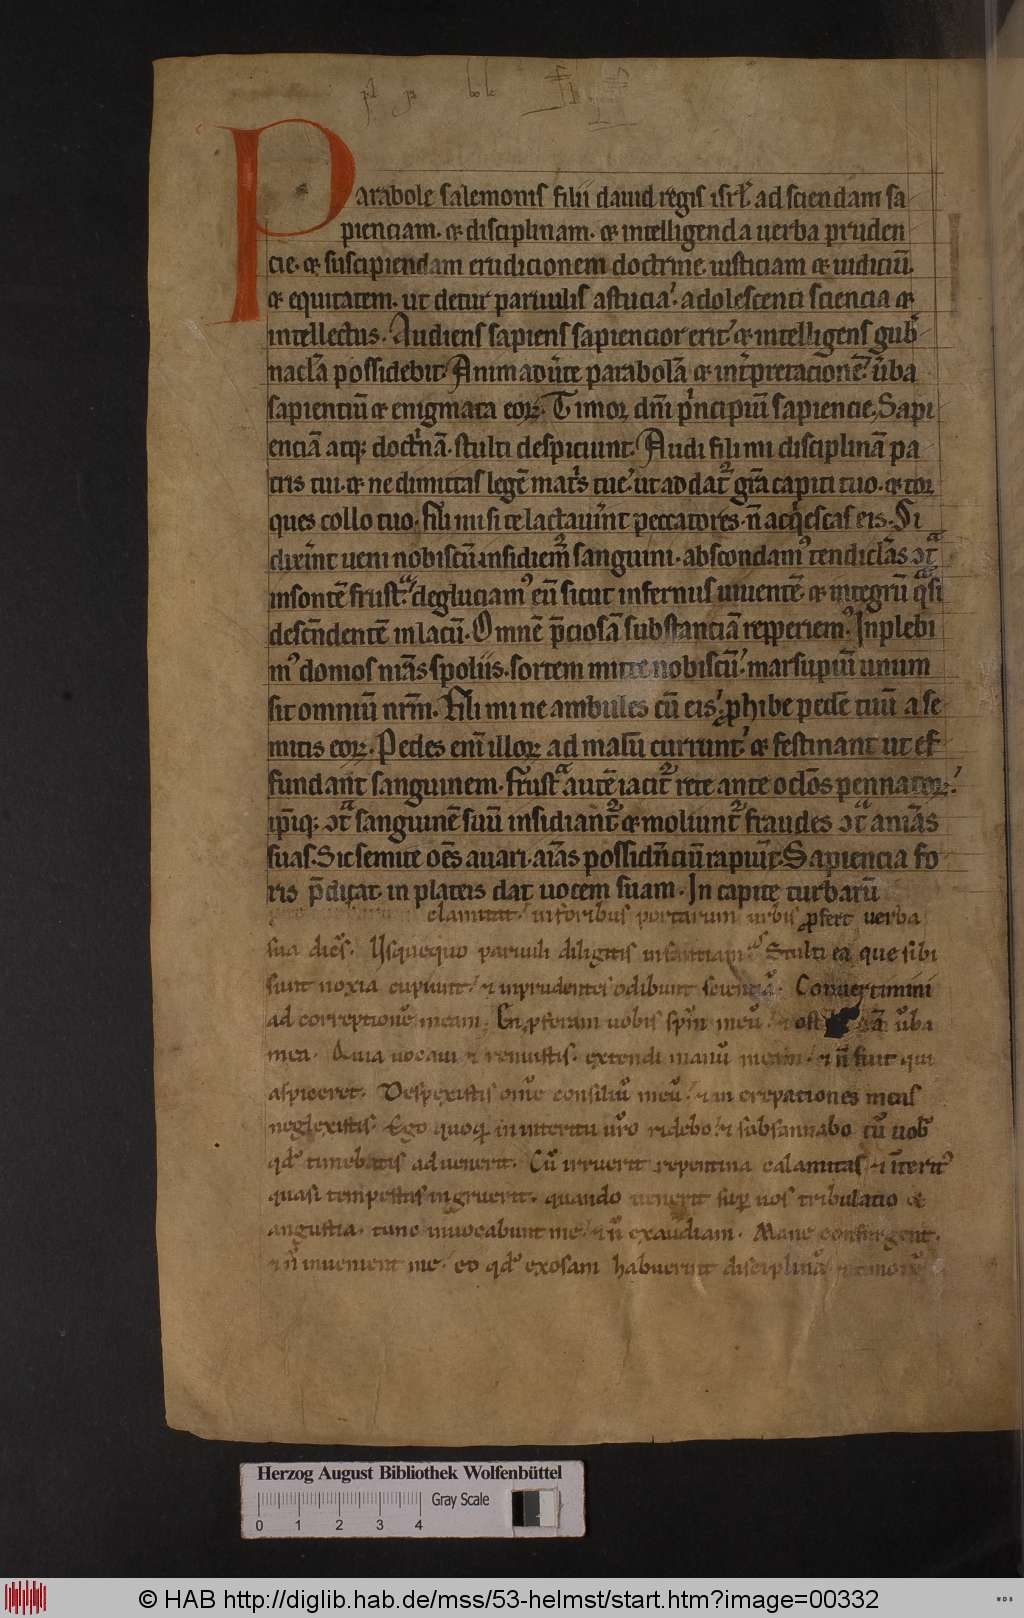 Parabole salemonis filii dauid regis isrł ad sciendam sa
pienciam. et disciplinam. et intelligenda uerba pruden
cie. et suscipiendam erudicionem doctrine. iusticiam et iudiciū.
et equitatem. ut detur paruulis astucia. adolescenti sciencia et
intellectus. Audiens sapiens sapiencior erit. et intelligens gub̄
nacl̄a possidebit. Animadūte parabolā et int̄pretacionē. ūba
sapientiū et enigmata eoꝝ. Timor dn̄i p̄ncipiū sapiencie. Sapi
enciā atqꝫ doctⁱnā. stulti despiciunt. Audi fili mi disciplinā pa
tris tui. et ne dimittas legē mat̄s tue. ut addat᷑ gr̄a capiti tuo. et tor
ques collo tuo. Fili mi si te lactauīnt peccatores. n̄ acqⁱescas eis. Si
dixīnt ueni nobiscū. insidiem᷑ sanguini. abscondamꝰ tendicl̄as ↄtᷓ
insontē frustᷓ. degluciamꝰ eū sicut infernus uiuentē. et integrū qᷓsi
descēndentē in lacū. Omnē p̄ciosā substanciā repperiemꝰ. Inplebi
mꝰ domos nr̄as spoliis. sortem mitte nobiscū. marsupiū unum
sit omniū nrm̄. Fili mi ne ambules cū eis. ꝓhibe pedē tuū a se
mitis eoꝝ. Pedes enī illoꝝ ad malū currunt. et festinant ut ef
fundant sanguinem. Frustᷓ autē iacit᷑ rete ante ocl̄os pennatoꝝ.
ip̄iqꝫ ↄtᷓ sanguinē suū insidiant᷑ et moliunt᷑ fraudes ↄtᷓ anīas
suas. Sic semite oēs auari. aīas possidn̄ciū rapiūt. Sapiencia fo
ris p̄dicat. in plateis dat uocem suam. In capite turbarū
clamitat. in foribus portarum urbis ꝓfert uerba
sua dicēs. Usquequo paruuli diligitis infantiam. Stulti ea que sibi
sunt noxia cupiunt. et inprudentes odibunt scientiā. Conuertimini
ad correptionē meam. En ꝓferam uobis spīn meū. ūba
mea. Quia uocaui et renuistis. extendi manū meam. et n̄ fuit qui
aspiceret. Despexistis omē consiliū meū. et increpationes meas
neglexistis. Ego quoqꝫ in interitu uro ridebo. et subsannabo cū uob̄
qd̄ timebatis aduenerit. Cū irruerit repentina calamitas et interitꝰ
quasi tempestas ingruerit. quando uenerit sup̄ uos tribulatio et
angustia. tunc inuocabunt me. et n̄ exaudiam. Mane consurgent.
et n̄ inuenient me. eo qd̄ exosam habuerint disciplinā et timorē
Herzog August Bibliothek Wolfenbüttel
Gray Scale
0 1 2 3 4
© HAB http://diglib.hab.de/mss/53-helmst/start.htm?image=00332